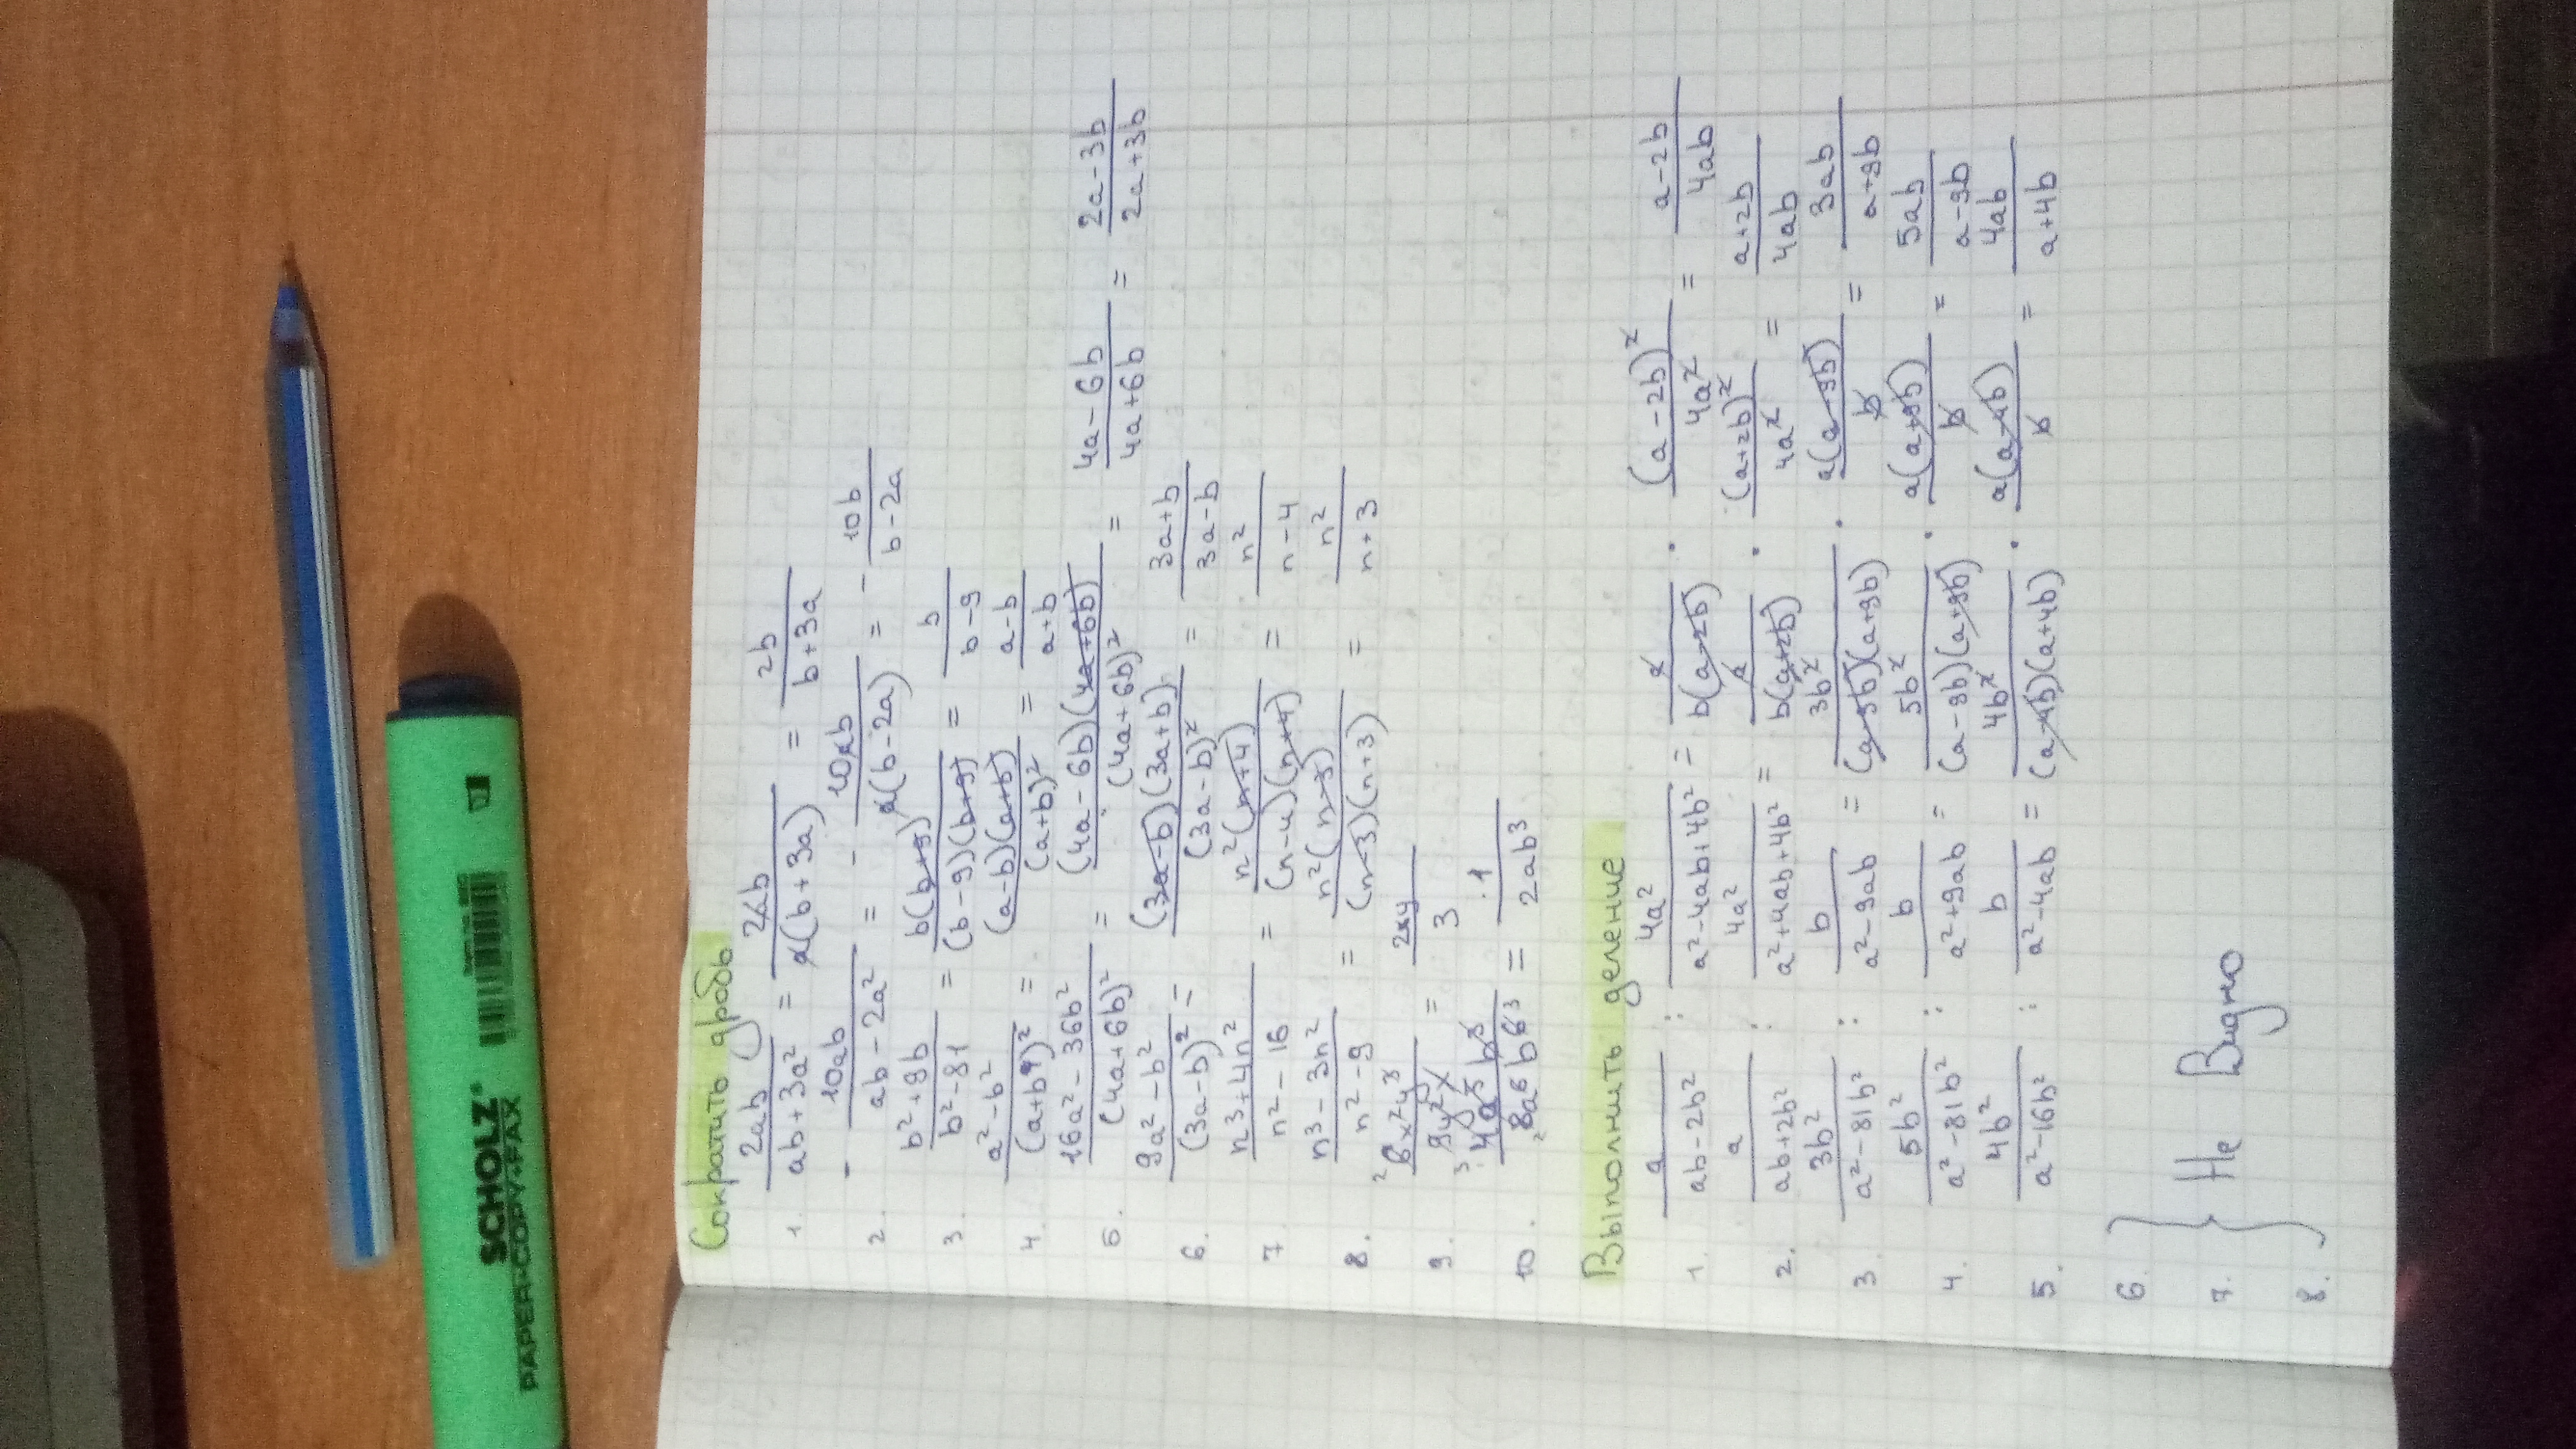 SCHOLZ®
PAPER·COPY·FAX
Сократить дробь
1. 2ab/(ab+3a²) = 2ab/(a(b+3a)) = 2b/(b+3a)
2. -10ab/(ab-2a²) = -10ab/(a(b-2a)) = -10b/(b-2a)
3. (b²+9b)/(b²-81) = b(b+9)/((b-9)(b+9)) = b/(b-9)
4. (a²-b²)/(a+b)² = (a-b)(a+b)/(a+b)² = (a-b)/(a+b)
5. (16a²-36b²)/(4a+6b)² = (4a-6b)(4a+6b)/(4a+6b)² = (4a-6b)/(4a+6b) = (2a-3b)/(2a+3b)
6. (9a²-b²)/(3a-b)² = (3a-b)(3a+b)/(3a-b)² = (3a+b)/(3a-b)
7 (n³+4n²)/(n²-16) = n²(n+4)/((n-4)(n+4)) = n²/(n-4)
8. (n³-3n²)/(n²-9) = n²(n-3)/((n-3)(n+3)) = n²/(n+3)
9. 6x²y³/9y²x = 2xy/3
10. 4a⁵b³/8a⁶b⁶ = 1/2ab³
Выполнить деление
1. a/(ab-2b²) : 4a²/(a²-4ab+4b²) = a/(b(a-2b)) · (a-2b)²/4a² = (a-2b)/4ab
2. a/(ab+2b²) : 4a²/(a²+4ab+4b²) = a/(b(a+2b)) · (a+2b)²/4a² = (a+2b)/4ab
3. 3b²/(a²-81b²) : b/(a²-9ab) = 3b²/((a-9b)(a+9b)) · a(a-9b)/b = 3ab/(a+9b)
4. 5b²/(a²-81b²) : b/(a²+9ab) = 5b²/((a-9b)(a+9b)) · a(a+9b)/b = 5ab/(a-9b)
5. 4b²/(a²-16b²) : b/(a²-4ab) = 4b²/((a-4b)(a+4b)) · a(a-4b)/b = 4ab/(a+4b)
6.
7. } Не Видно
8.